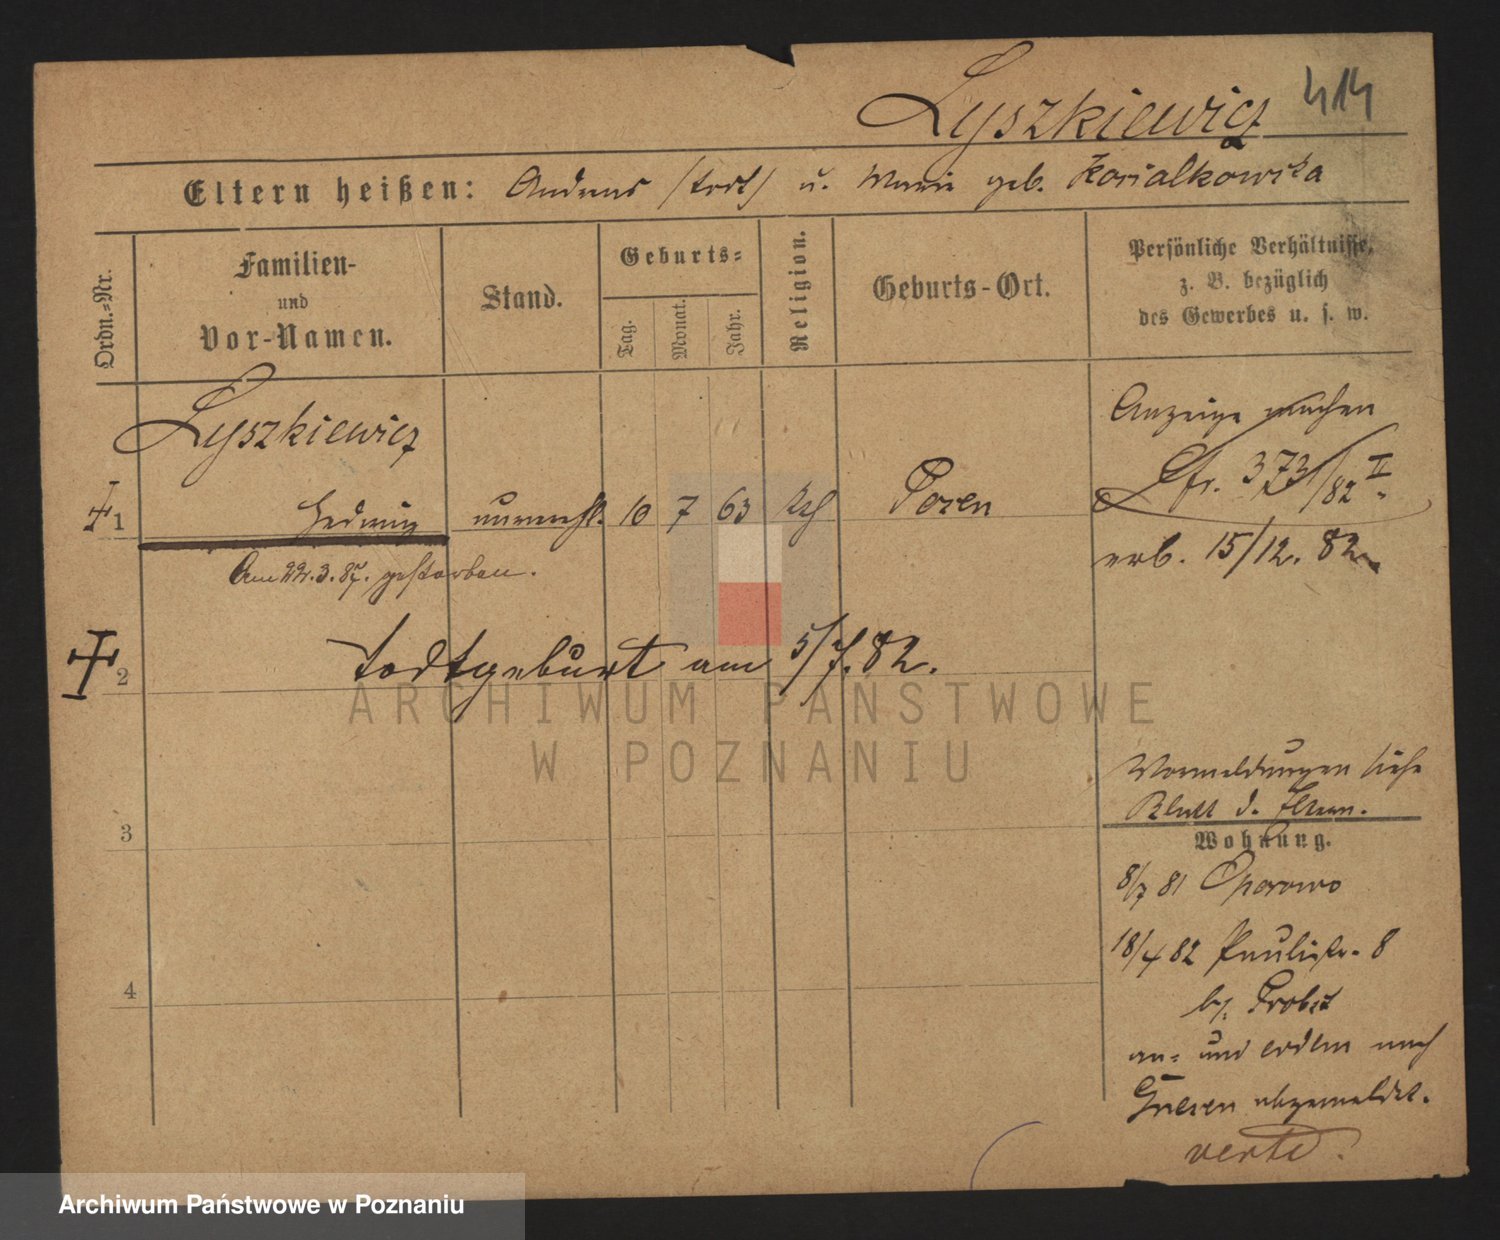 Lyszkiewicz 414
Eltern heißen: Andreas (todt) u. Marie geb. Kosialkowska
Ordn.=Nr.
Familien-
und
Vor-Namen.
Stand.
Geburts=
Tag.
Monat.
Jahr.
Religion.
Geburts-Ort.
Persönliche Verhältnisse,
z. B. bezüglich
des Gewerbes u. s. w.
Lyszkiewicz
1 Hedwig unvereh. 10 7 63 kth Posen
Am 22.3.87. gestorben.
2 todtgeburt am 5/7.82.
3
4
Anzeige machen
Lfr. 373/82 II
erb. 15/12. 82.
Vormeldungen siehe
Blatt d. Eltern.
Wohnung.
8/7 81 Oporowo
18/4 82 Paulistr. 8
b/. Probst
an= und eodem nach
Gnesen abgemeldet.
verte.
ARCHIWUM PAŃSTWOWE
W POZNANIU
Archiwum Państwowe w Poznaniu